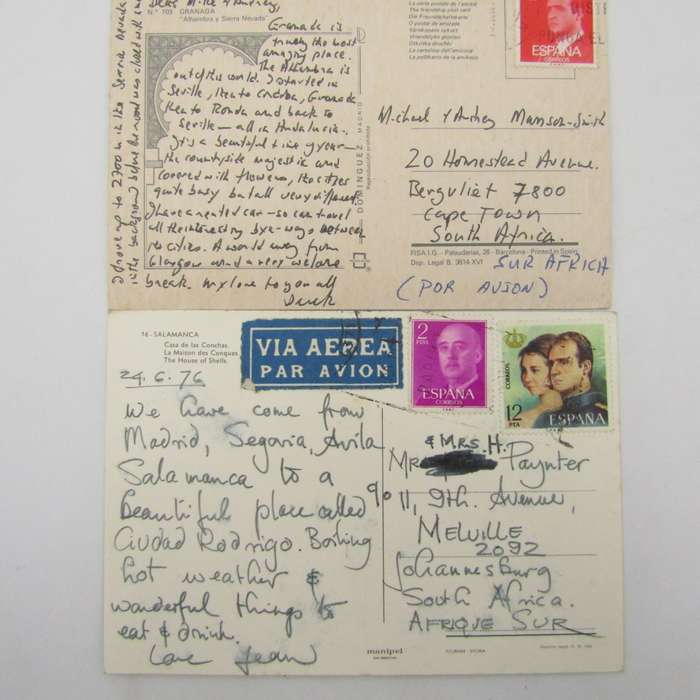 Dear Mike & Audrey,
Nº 103 GRANADA
"Alhambra y Sierra Nevada"
Granada is
truly the most
amazing place.
The Alhambra is
out of this world. I started in
Seville, then to Cordoba, Granada
then to Ronda and back to
Seville — all in Andalucia.
It's a beautiful time of year —
the countryside majestic and
covered with flowers, the cities
quite busy but all very different.
I have a rented car — so can travel
all the interesting bye-ways between
the cities. A world away from
Glasgow and a very welcome
break. My love to you all
I drove up to 2700 m in the Sierra Nevada
in the background before the road was closed with snow
DOMINGUEZ - MADRID
Reproduction prohibida
The friendship post card
Die Freundschaftskarte
ESPAÑA
CORREOS
Michael & Audrey
20 Homestead Avenue.
Bergvliet 7800
Cape Town
South Africa.
FISA I.G. - Palaudarias, 26 - Barcelona - Printed in Spain
Dep. Legal B. 3614 XVI
SUR AFRICA
(POR AVION)
14 - SALAMANCA
Casa de las Conchas.
La Maison des Conques.
The House of Shells.
VIA AEREA
PAR AVION
2
PTA
CORREOS
ESPAÑA
CORREOS
12
PTA
ESPAÑA
24.6.76
We have come from
Madrid, Segovia, Avila
Salamanca to a
beautiful place called
Ciudad Rodrigo. Boiling
hot weather &
wonderful things to
eat & drink.
Love Jean
& MRS. H.
MR Paynter
9o 11, 9th. Avenue,
MELVILLE
2092
Johannesburg
South Africa.
AFRIQUE SUR
manipel